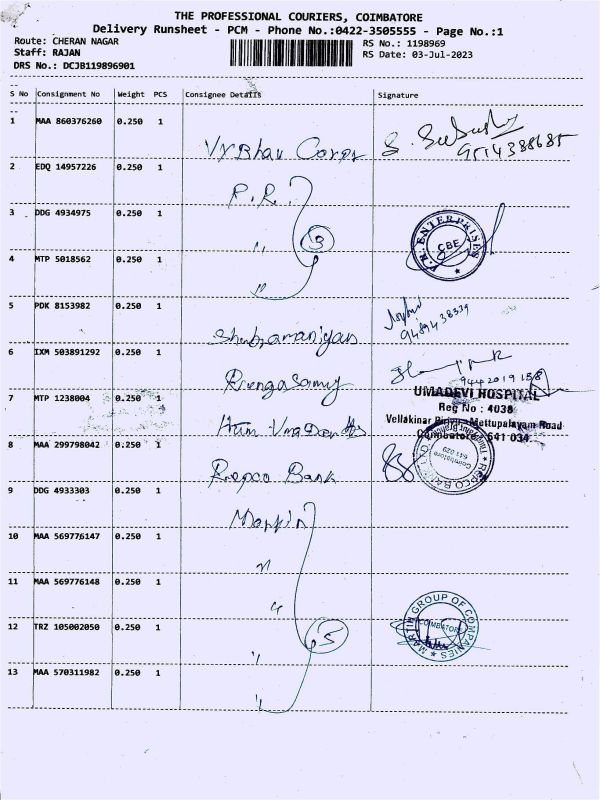 THE PROFESSIONAL COURIERS, COIMBATORE
Delivery Runsheet - PCM - Phone No.:0422-3505555 - Page No.:1
Route: CHERAN NAGAR
RS No.: 1198969
Staff: RAJAN
RS Date: 03-Jul-2023
DRS No.: DCJB119896901
S No Consignment No Weight PCS Consignee Details Signature
1 MAA 860376260 0.250 1
Vybhav Corps
9514388685
2 EDQ 14957226 0.250 1
P.R.
3 DDG 4934975 0.250 1
" 3
V.R. ENTERPRISES CBE
4 MTP 5018562 0.250 1
"
5 PDK 8153982 0.250 1
Shubramaniyan
9489438339
6 IXM 503891292 0.250 1
Rengasamy
7 MTP 1238004 0.250 1
UMADEVI HOSPITAL
Reg No : 4038
Vellakinar Mettupalayam Road
Coimbatore 641 034
8 MAA 299798042 0.250 1
Repco Bank
REPCO BANK Coimbatore 641 029
9 DDG 4933303 0.250 1
Martin
10 MAA 569776147 0.250 1
"
11 MAA 569776148 0.250 1
"
12 TRZ 105002050 0.250 1
" 5
MARTIN GROUP OF COMPANIES COIMBATORE
13 MAA 570311982 0.250 1
"